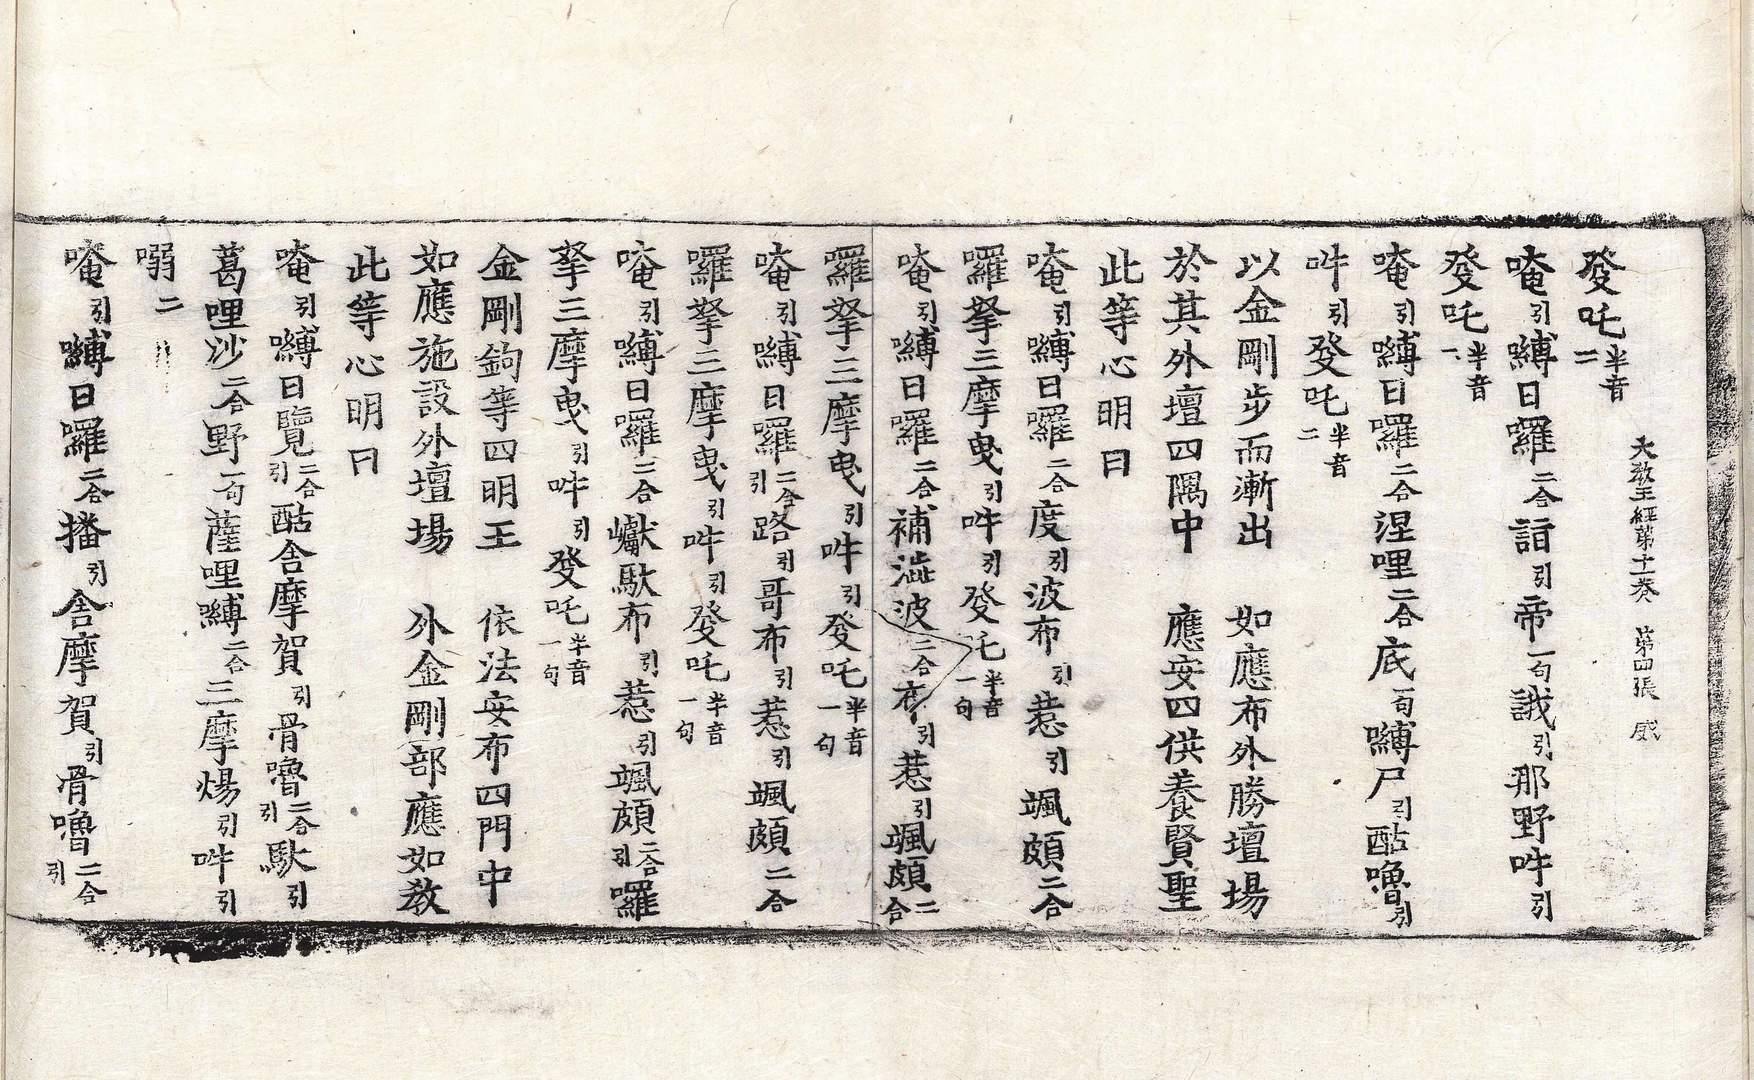 發吒半音二
大教王經第十一卷 第四張
唵引嚩日囉二合詣引帝一句誐引那野吽引
發吒半音一
唵引嚩日囉二合涅哩二合底一句嚩尸引酤嚕引
吽引發吒半音二
以金剛步而漸出 如應布外勝壇場
於其外壇四隅中 應安四供養賢聖
此等心明曰
唵引嚩日囉二合度引波布引惹引颯頗二合
囉拏三摩曳引吽引發吒半音一句
唵引嚩日囉二合補澁波二合布引惹引颯頗二合
囉拏三摩曳引吽引發吒半音一句
唵引嚩日囉二合引路引哥布引惹引颯頗二合
囉拏三摩曳引吽引發吒半音一句
唵引嚩日囉二合巘馱布引惹引颯頗二合引囉
拏三摩曳引吽引發吒半音一句
金剛鉤等四明王 依法安布四門中
如應施設外壇場 外金剛部應如教
此等心明曰
唵引嚩日覽二合引酤舍摩賀引骨嚕二合引馱引
葛哩沙二合野一句薩哩嚩二合三摩煬引吽引
嗍二
唵引嚩日囉二合播引舍摩賀引骨嚕二合引